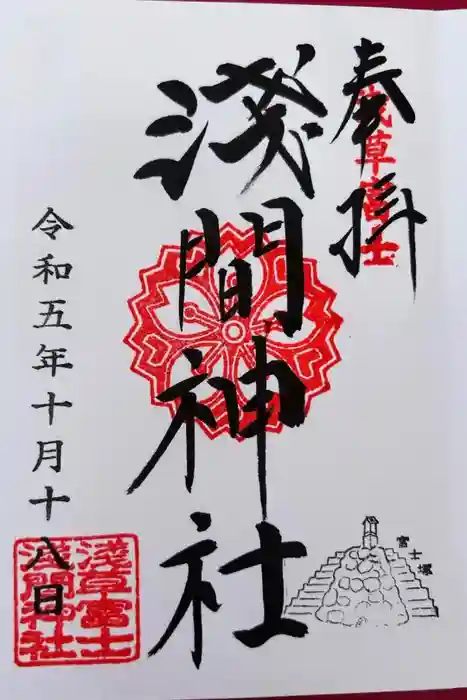 奉拝
浅草富士
淺間神社
富士塚
令和五年十月十八日
淺草富士
浅間神社